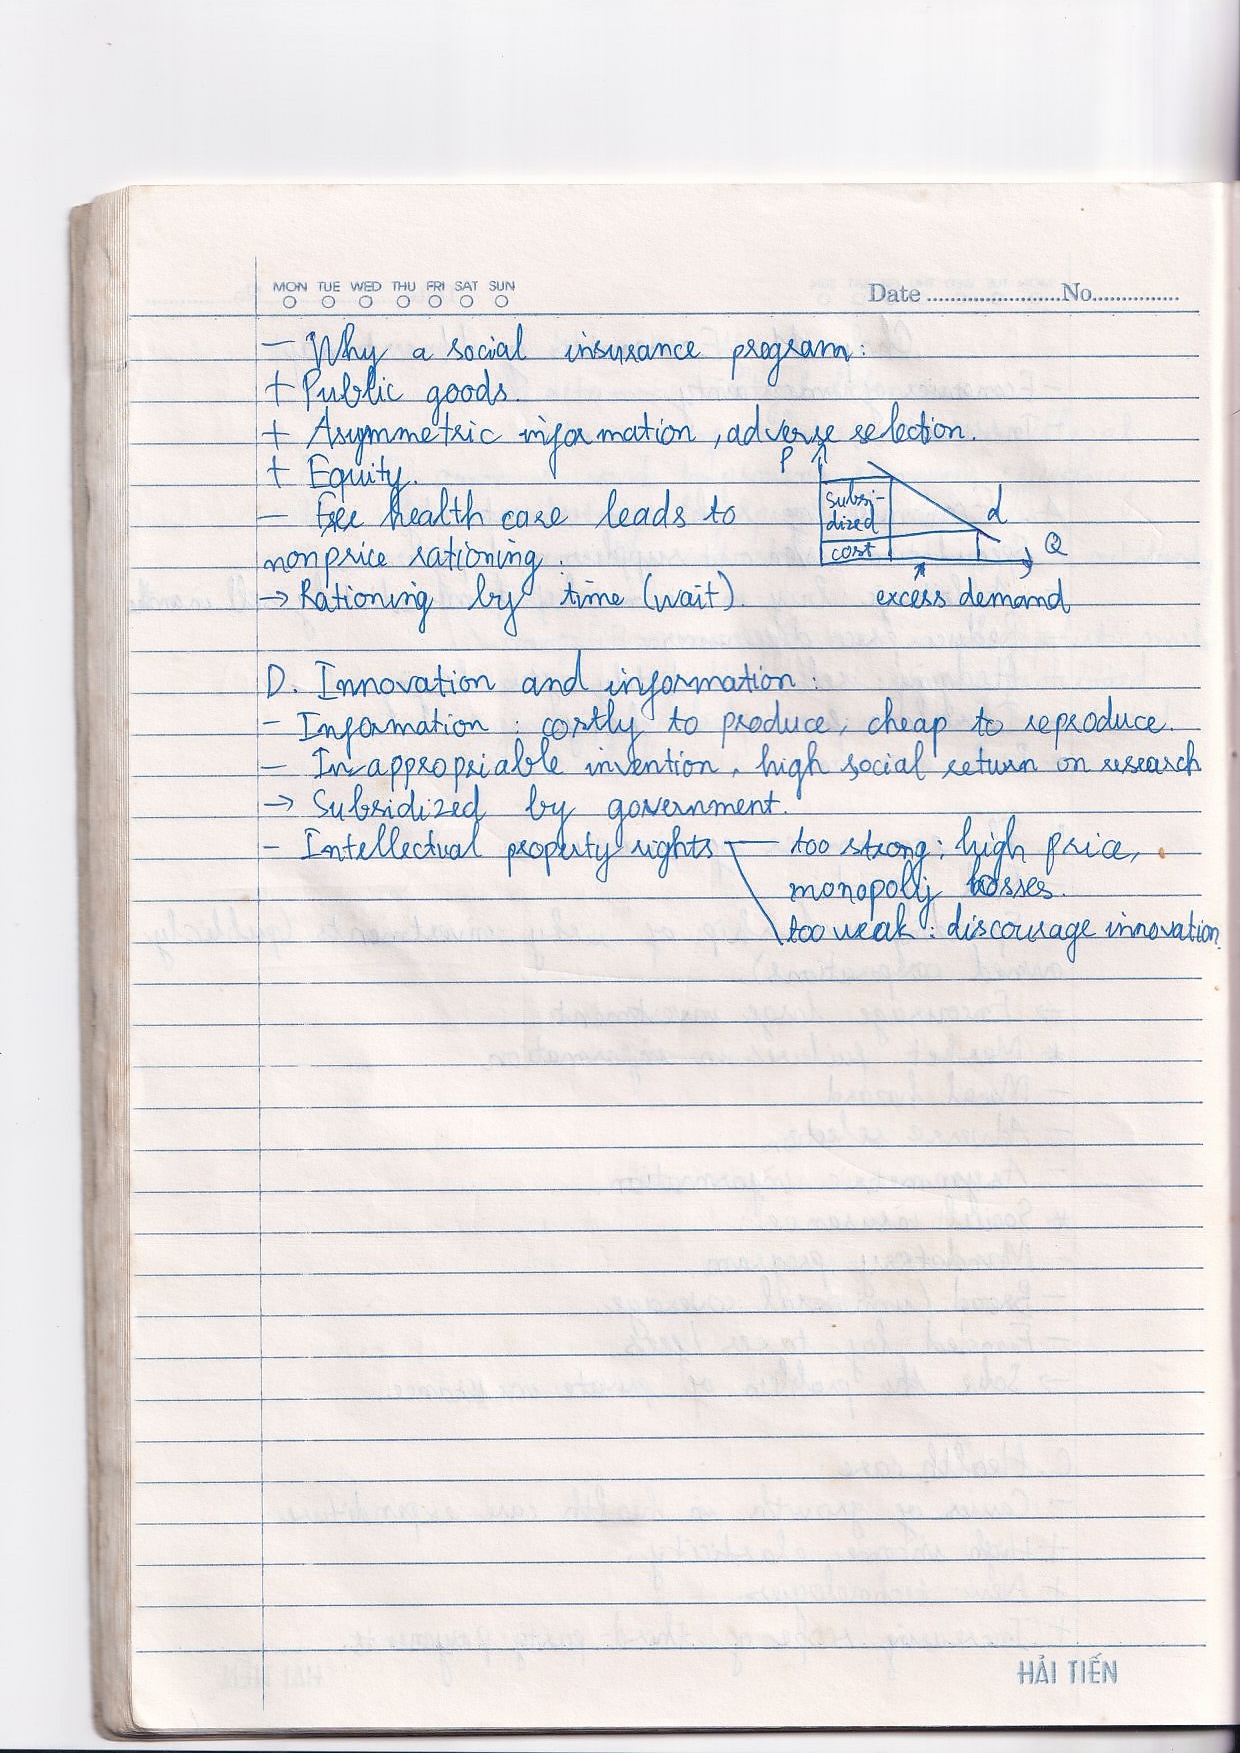 MON TUE WED THU FRI SAT SUN
Date No
- Why a social insurance program:
+ Public goods.
+ Asymmetric information, adverse selection.
+ Equity.
- Free health care leads to
nonprice rationing:
→ Rationing by time (wait).
P
subsi-
dized
cost
d
Q
excess demand
D. Innovation and information:
- Information: costly to produce, cheap to reproduce.
- Inappropriable invention, high social return on research
→ Subsidized by government.
- Intellectual property rights
too strong: high price,
monopoly losses.
too weak: discourage innovation.
HẢI TIẾN